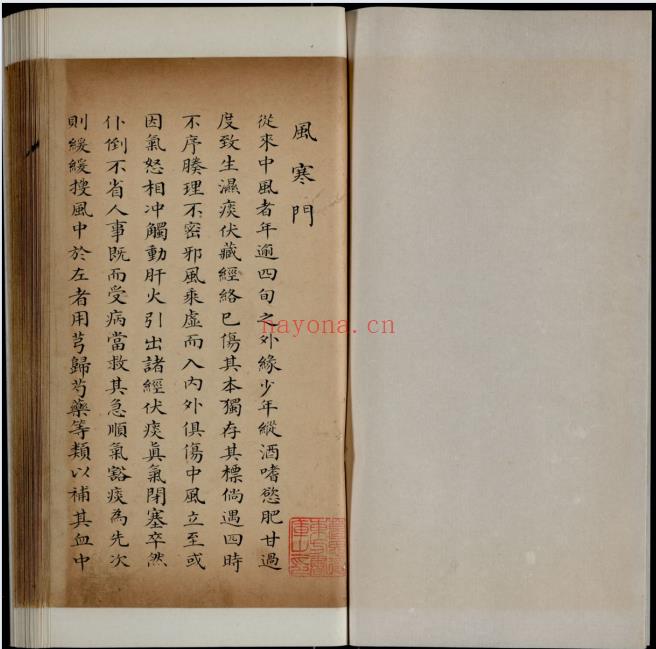 風寒門
從來中風者年逾四旬之外緣少年縱酒嗜慾肥甘過
度致生濕痰伏藏經絡已傷其本獨存其標倘遇四時
不序腠理不密邪風乘虛而入內外俱傷中風立至或
因氣怒相冲觸動肝火引出諸經伏痰眞氣閉塞卒然
仆倒不省人事既而受病當救其急順氣豁痰為先次
則緩緩搜風中於左者用芎歸芍藥等類以補其血中
nayona.cn